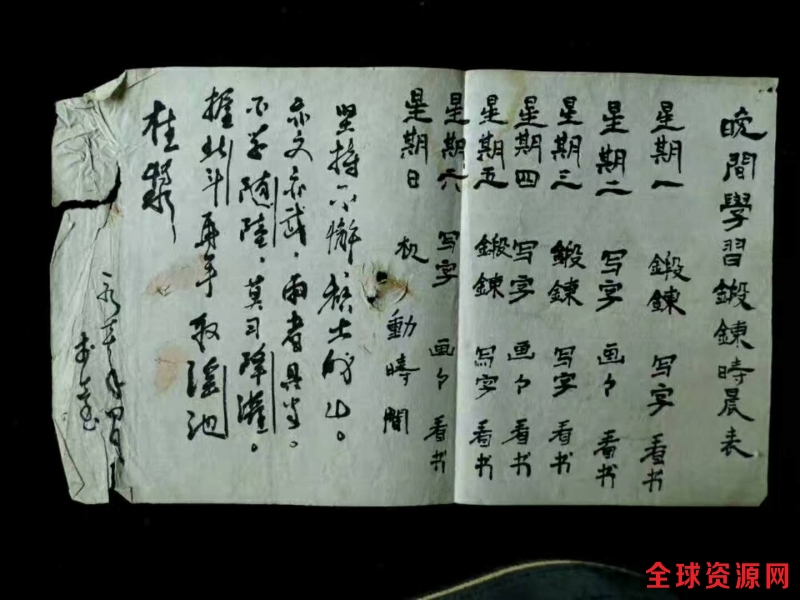 晚間學習鍛鍊時晨表
星期一 鍛鍊 写字 看书
星期二 写字 画卜 看书
星期三 鍛鍊 写字 看书
星期四 写字 画卜 看书
星期五 鍛鍊 写字 看书
星期六 写字 画卜 看书
星期日 机動時間
坚持不懈，山。
亦文亦武，兩者具当。
不学随陸，莫习降灌。
握北斗再手取瑶池
桂
四月
全球资源网